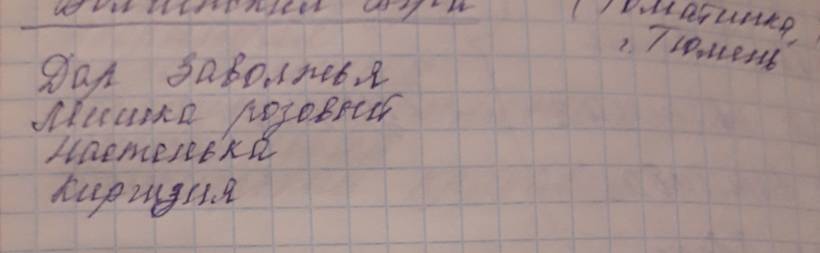 (Томатинка,
г. Тюмень
Дар Заволжья
Мишка розовый
Настенька
Киргизия